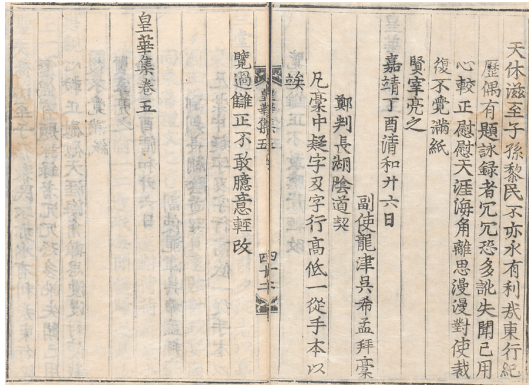 天休滋至子孫黎民不亦永有利哉東行紀
歷偶有題詠錄者冗冗恐多訛失聞已用
心較正慰慰天涯海角離思漫漫對使裁
復不覺滿紙
賢宰亮之
嘉靖丁酉清和廿六日
副使龍津吳希孟拜稾
鄭判長湖陰道契
凡稾中疑字及字行高低一從手本以
竢
覽過讎正不敢臆意輕改
皇華集五
四十七
皇華集卷五